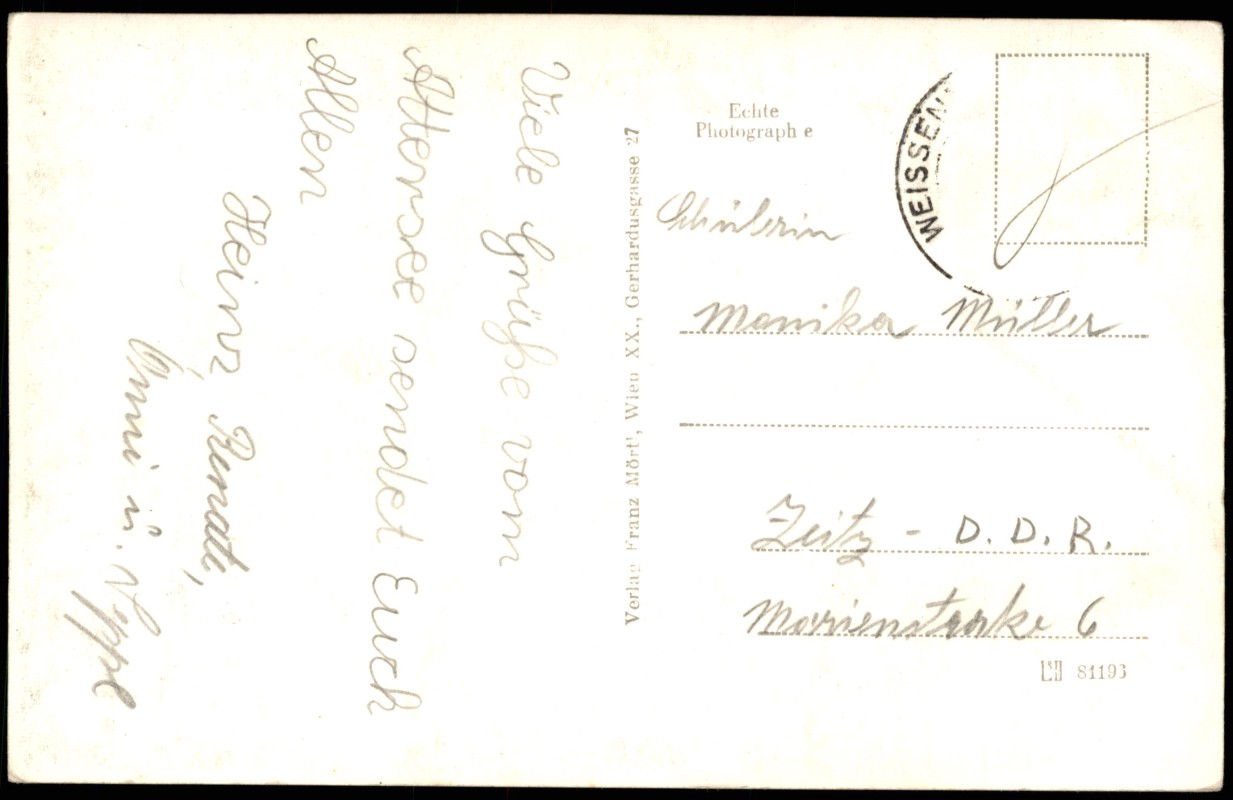 Viele Grüße vom
Attersee sendet Euch
Allen
Heinz, Renate,
u.
Echte
Photograph e
WEISSEN
Schülerin
Monika Müller
Zeitz - D.D.R.
Marienstarke 6
81193
Verlag Franz Mörtl, Wien XX., Gerhardusgasse 27